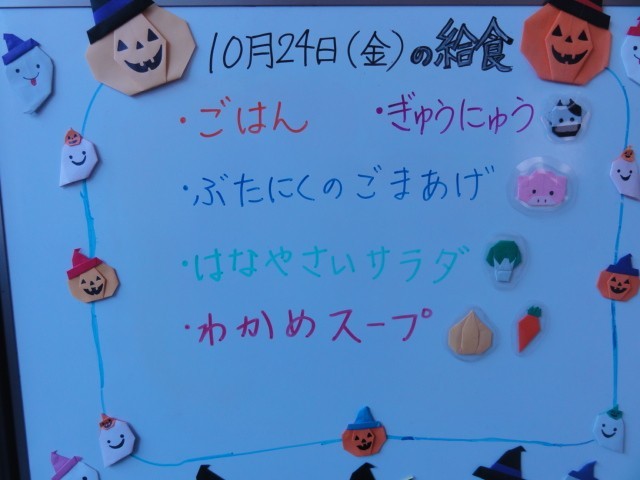 10月24日(金)の給食
・ごはん ・ぎゅうにゅう
・ぶたにくのごまあげ
・はなやさいサラダ
・わかめスープ